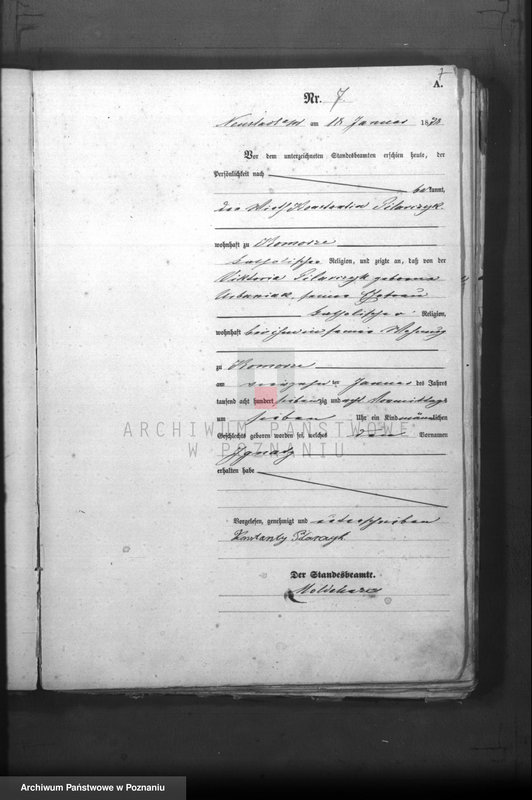 7
A.
Nr. 7.
Neustadt a/W am 18 Januar 1878
Vor dem unterzeichneten Standesbeamten erschien heute, der
Persönlichkeit nach
bekannt,
der Wirth Konstantin Pilarczyk
wohnhaft zu Komorze
katholischer Religion, und zeigte an, daß von der
Viktoria Pilarczyk geborene
Urbaniak, seiner Ehefrau
katholischer Religion,
wohnhaft bei ihm in seiner Wohnung
zu Komorze
am Januar des Jahres
tausend acht hundert siebenzig und acht Vormittags
um sieben Uhr ein Kind männlichen
Geschlechts geboren worden sei, welches den Vornamen
Ignatz
erhalten habe
Vorgelesen, genehmigt und unterschrieben
Konstanty Pilarczyk
Der Standesbeamte.
ARCHIWUM PAŃSTWOWE
W POZNANIU
Archiwum Państwowe w Poznaniu